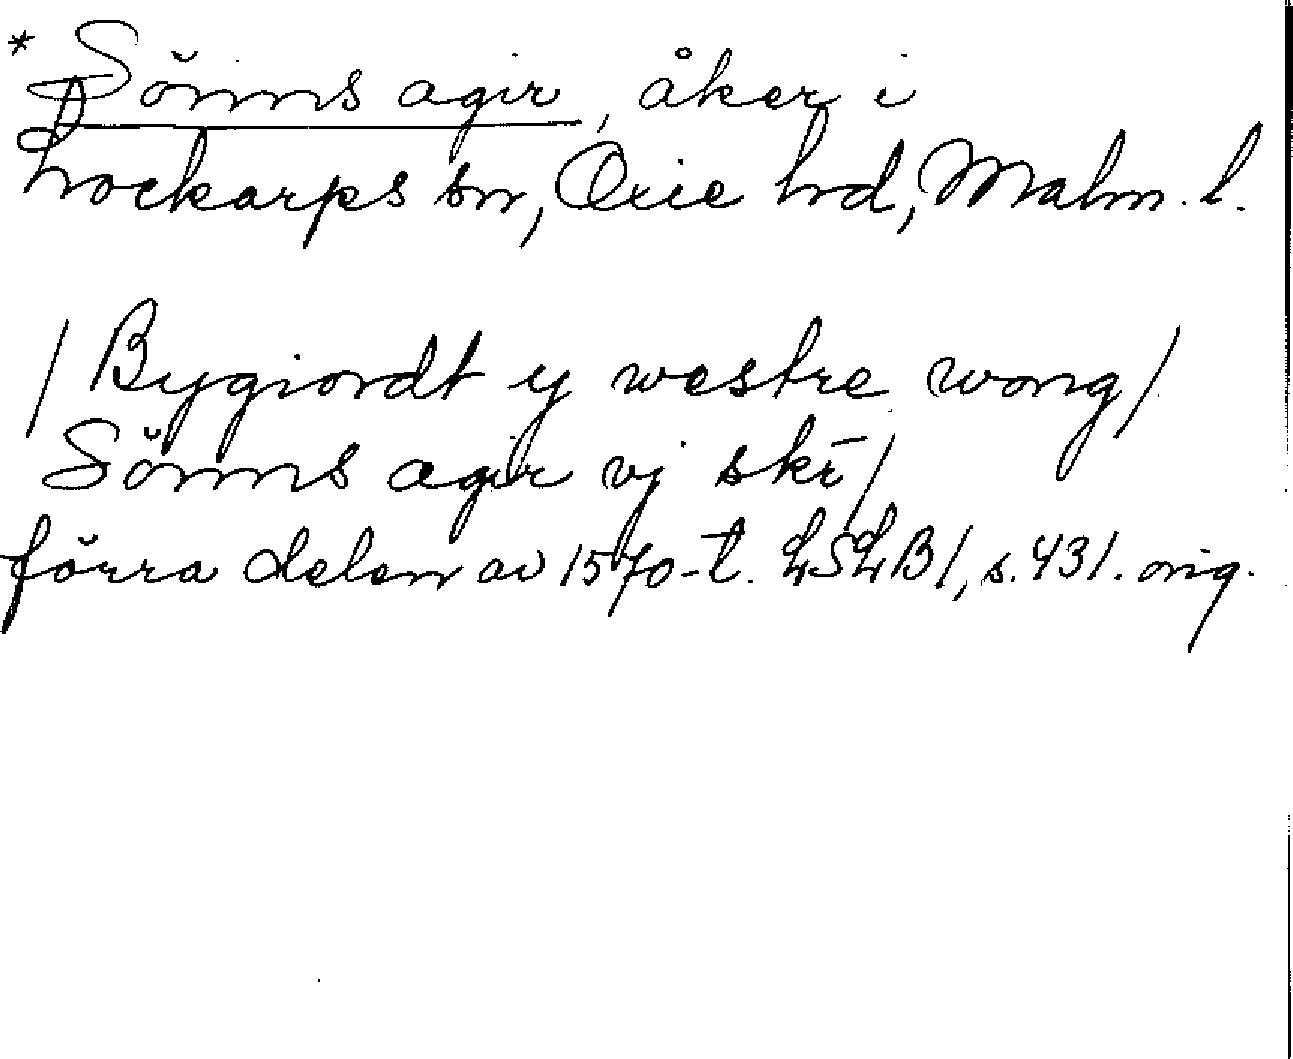 * Sönns agir, åker i
Lockarps sn, Oxie hd, Malm. l.
/ Bygiordt y westre wong /
Sönns agir vj skē /
förra delen av 1570-t. LSLB 1, s. 431. orig.